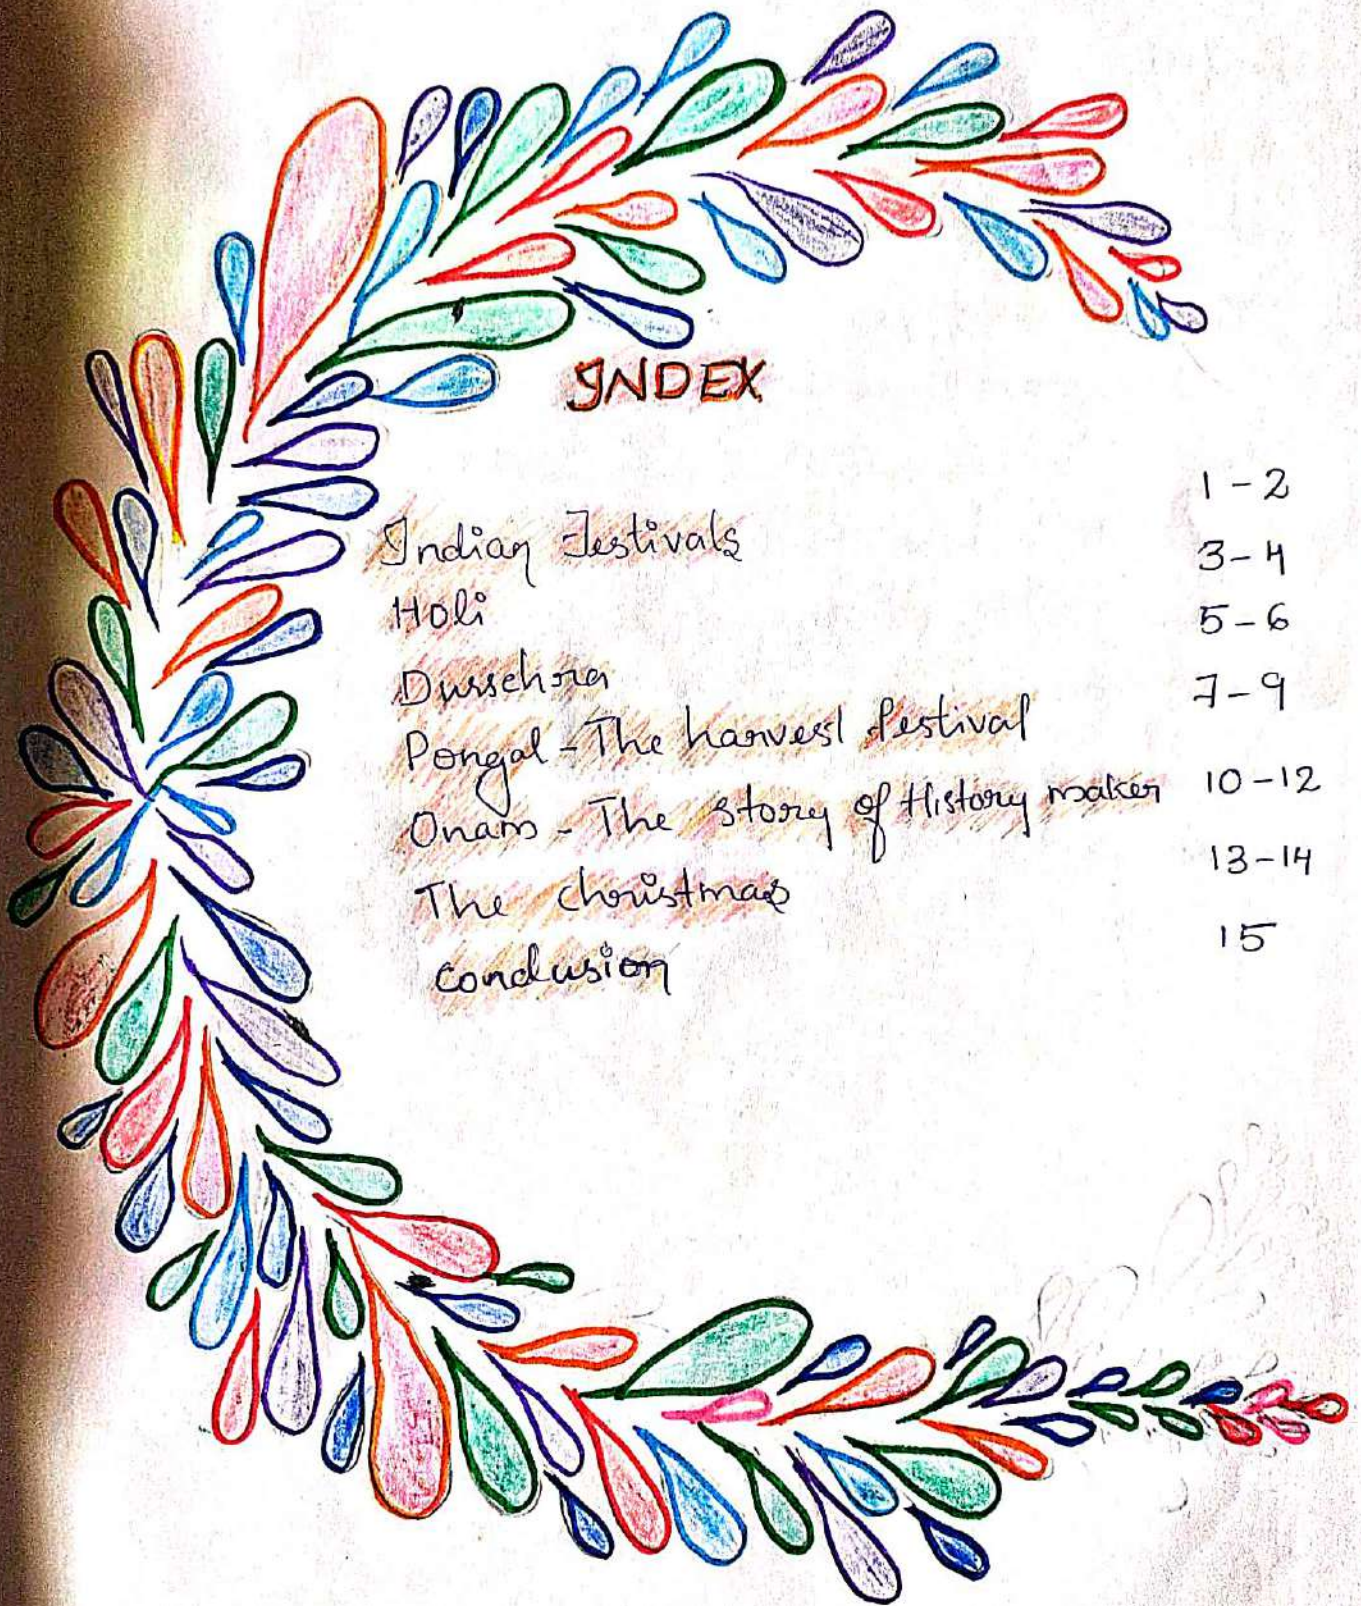 INDEX
Indian Festivals 1-2
Holi 3-4
Dussehra 5-6
Pongal - The harvest festival 7-9
Onam - The story of History maker 10-12
The christmas 13-14
conclusion 15